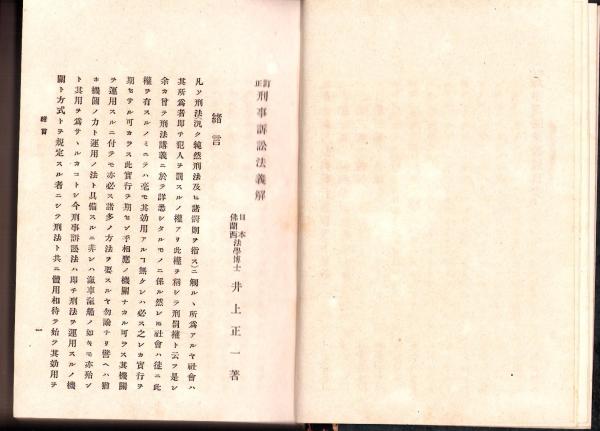 訂正刑事訴訟法義解
日本佛蘭西法學博士 井上正一著
緒言
凡ソ刑法(汎ク純然刑法及ヒ諸罰則ヲ指ス)ニ觸ルヽ所爲アルヤ社會ハ
其所爲者即チ犯人ヲ罰スルノ權アリ此權ヲ稱シテ刑罰權ト云フ是レ
余カ曾テ刑法講義ニ於テ詳悉シタルモノニ係ル然レ𪜈社會ハ徒ニ此
權ヲ有スルノミニテハ毫モ其効用アルコ無クンハ必ス之レカ實行ヲ
期セサル可カラス此實行ヲ期セン乎相應ノ機關ナカル可ラス其機關
ヲ運用スルニ付テモ亦必ス諸多ノ方法ヲ要スルヤ勿論ナリ譬ヘハ猶
ホ機關ノ力ト運用ノ法ト具備スルニ非レハ滊車滊船ノ如キモ亦殆ン
ト其用ヲ爲サヽルカコトシ今刑事訴訟法ハ即チ刑法ヲ運用スルノ機
關ト方式トヲ規定スル者ニシテ刑法ト共ニ體用相待テ始テ其効用ヲ
緒言
一